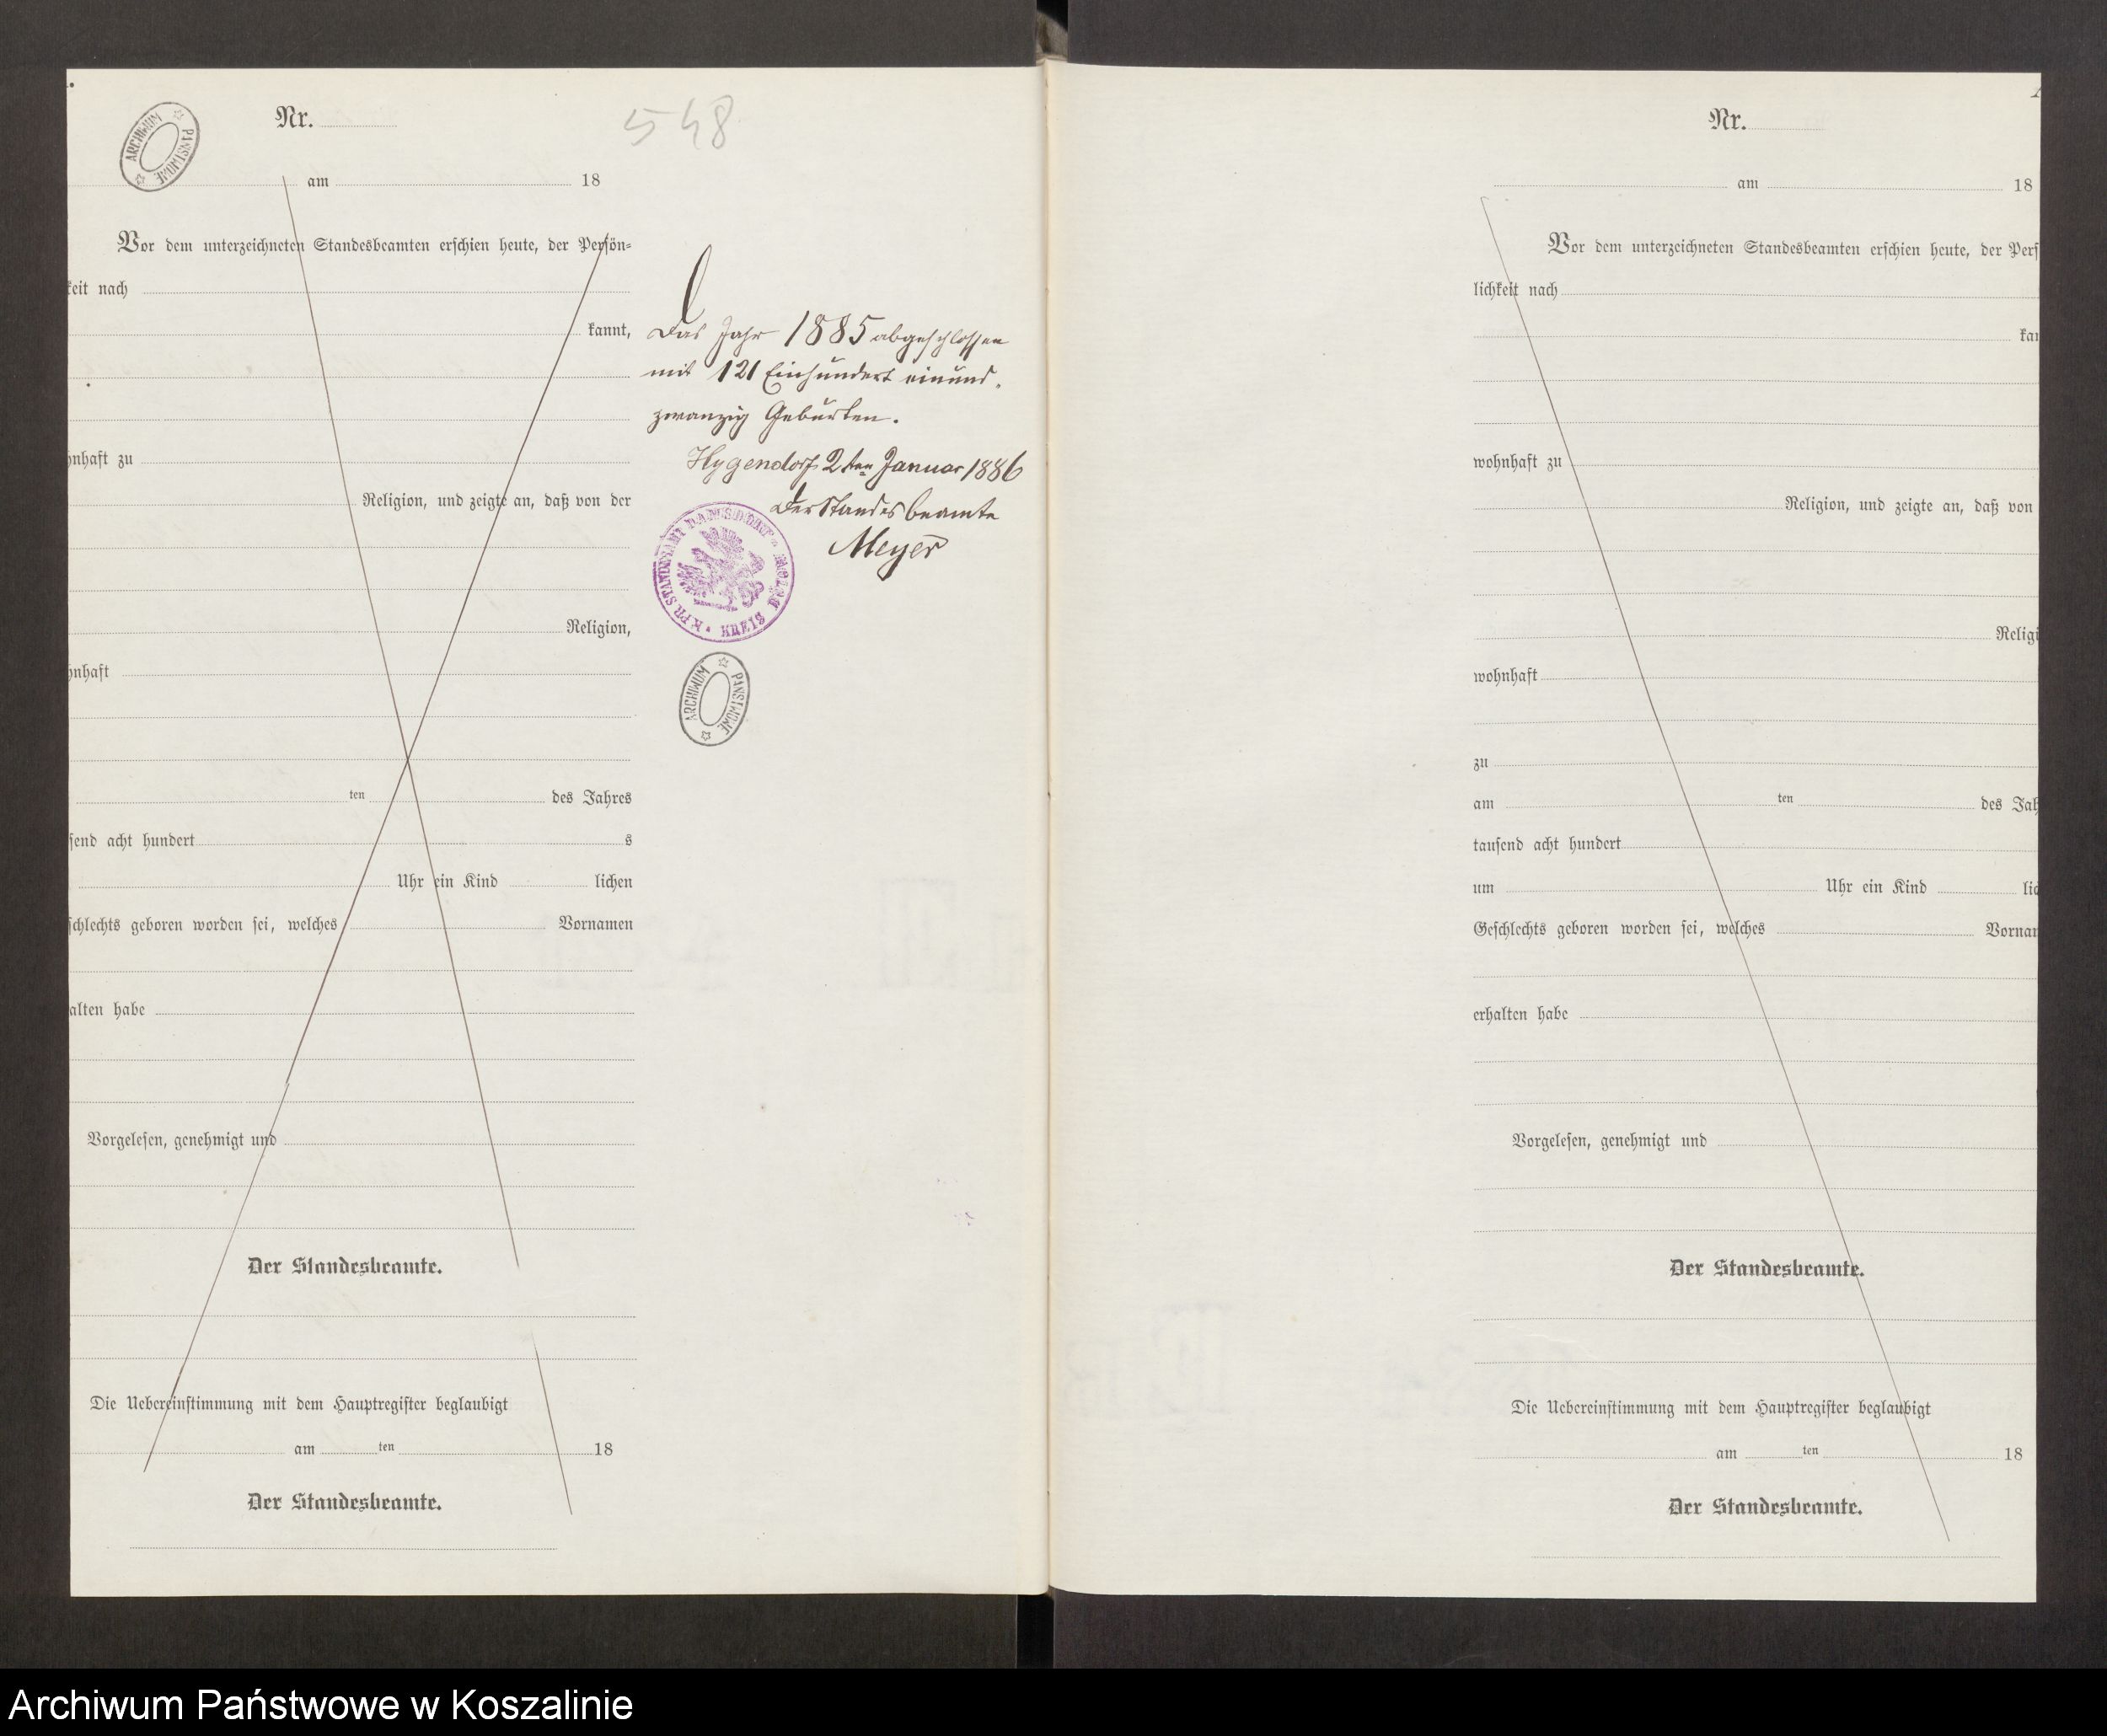 Nr.
548
am 18
Vor dem unterzeichneten Standesbeamten erschien heute, der Persön=
keit nach
kannt,
Das Jahr 1885 abgeschlossen
mit 121 Einhundert einund-
zwanzig Geburten.
Hygendorf 2ten Januar 1886
Der Standesbeamte
Meyer
K. PR. STANDESAMT KREIS
ARCHIWUM PAŃSTWOWE
ARCHIWUM PAŃSTWOWE
hnhaft zu
Religion, und zeigte an, daß von der
Religion,
hnhaft
ten des Jahres
send acht hundert s
Uhr ein Kind lichen
schlechts geboren worden sei, welches Vornamen
alten habe
Vorgelesen, genehmigt und
Der Standesbeamte.
Die Uebereinstimmung mit dem Hauptregister beglaubigt
am ten 18
Der Standesbeamte.
Nr.
am 18
Vor dem unterzeichneten Standesbeamten erschien heute, der Pers
lichkeit nach
kan
wohnhaft zu
Religion, und zeigte an, daß von
Religi
wohnhaft
zu
am ten des Jah
tausend acht hundert
um Uhr ein Kind lic
Geschlechts geboren worden sei, welches Vornam
erhalten habe
Vorgelesen, genehmigt und
Der Standesbeamte.
Die Uebereinstimmung mit dem Hauptregister beglaubigt
am ten 18
Der Standesbeamte.
Archiwum Państwowe w Koszalinie